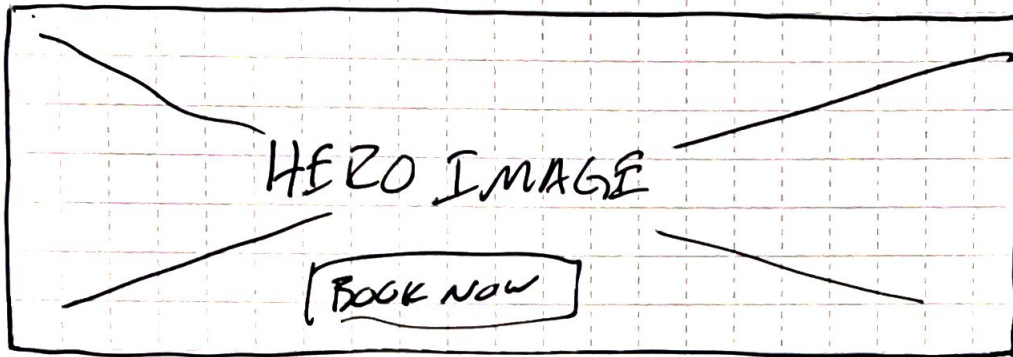 HERO IMAGE
BOOK NOW